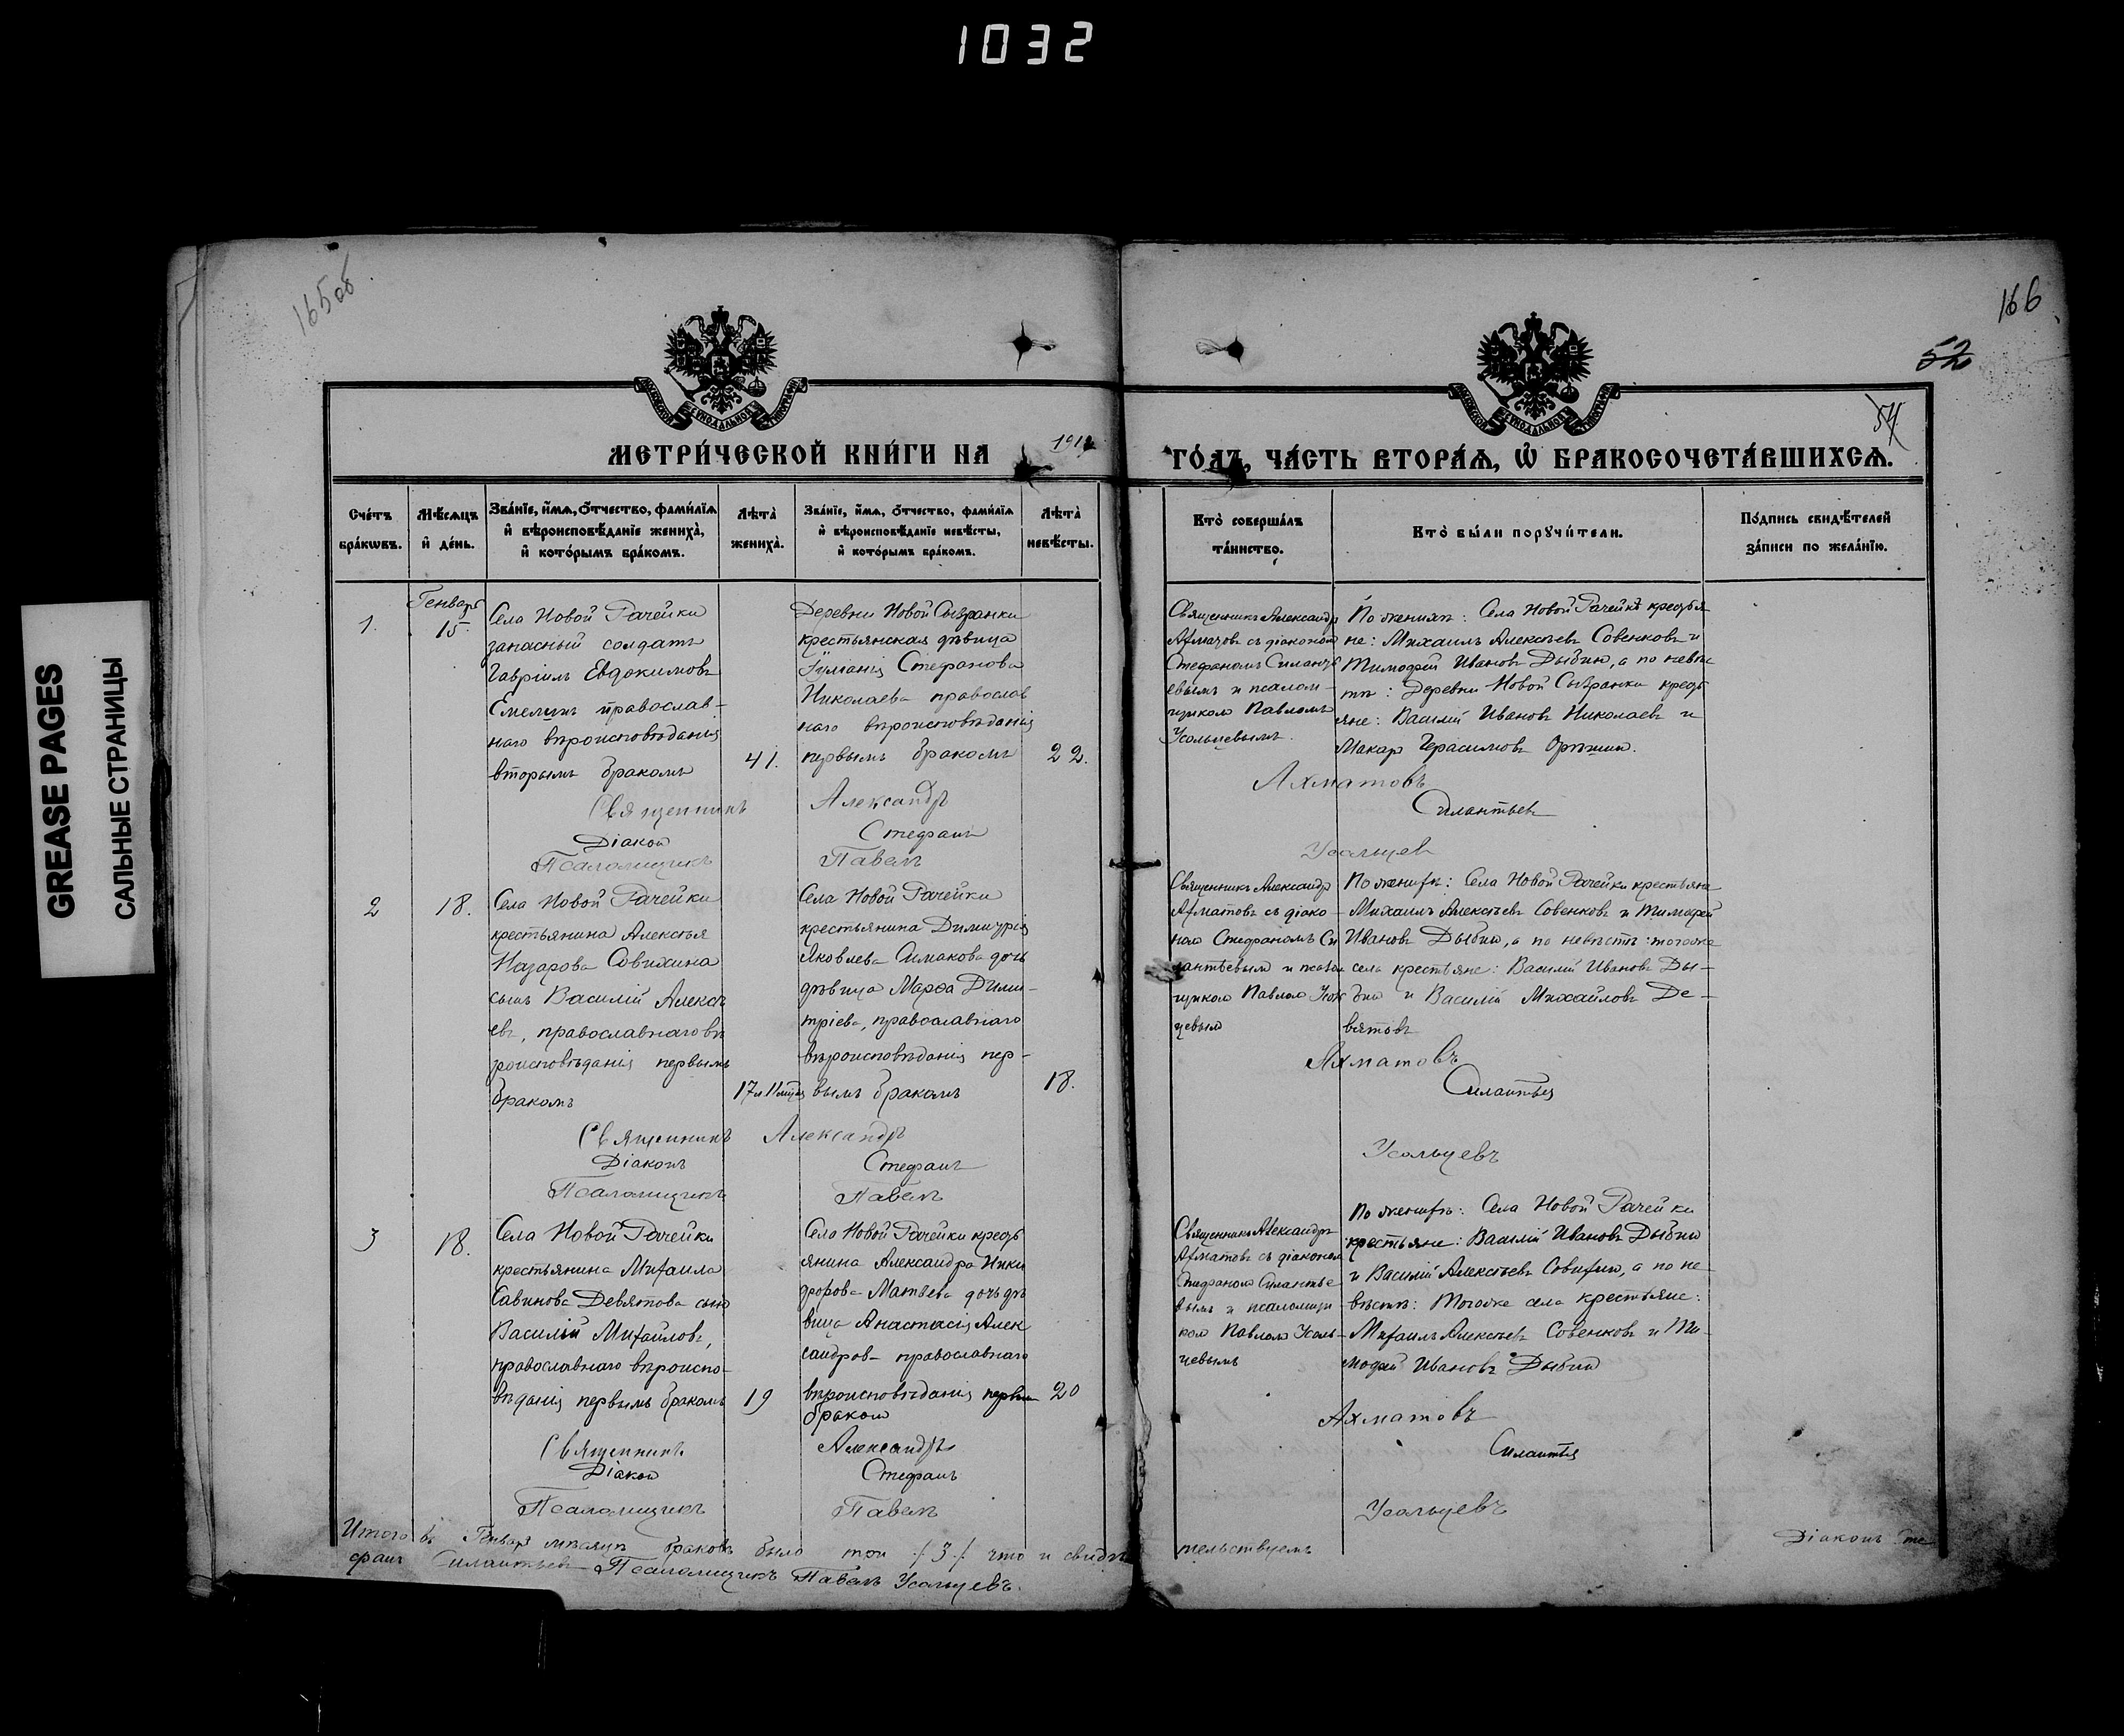 1032
GREASE PAGES
САЛЬНЫЕ СТРАНИЦЫ
165об
166
52
54
МЕТРИ́ЧЕСКОЙ КНИ́ГИ НА 191
ГО́ДЪ, ЧА́СТЬ ВТОРА́Ѧ, Ѡ҆ БРАКОСОЧЕТА́ВШИХСѦ.
Сче́тъ бра́кѡвъ.
Мѣ́сѧцъ и҆ де́нь.
Зва́нїе, и҆́мѧ, ѻ҆́тчество, фами́лїѧ и҆ вѣроисповѣ́данїе жениха̀, и҆ кото́рымъ бра́комъ.
Лѣта̀ жениха̀.
Зва́нїе, и҆́мѧ, ѻ҆́тчество, фами́лїѧ и҆ вѣроисповѣ́данїе невѣ́сты, и҆ кото́рымъ бра́комъ.
Лѣта̀ невѣ́сты.
Кто̀ соверша́лъ та́инство.
Кто̀ бы́ли порꙋчи́тели.
По́дпись свидѣ́телей за́писи по жела́нїю.
1.
Генварь
15.
Села Новой Рачейки
запасный солдатъ
Гавріилъ Евдокимовъ
Емелинъ православ-
наго вѣроисповѣданія
вторымъ бракомъ
41.
Деревни Новой Сызранки
крестьянская дѣвица
Іуліанія Стефанова
Николаева православ
наго вѣроисповѣданія
первымъ бракомъ
22.
Священникъ Александръ
Ахматовъ съ діакономъ
Стефаномъ Силанть
евымъ и псалом-
щикомъ Павломъ
Усольцевымъ.
По женихѣ: Села Новой Рачейки крестья
не: Михаилъ Алексѣевъ Совенковъ и
Тимофей Ивановъ Дыбинъ, а по невѣс
тѣ: Деревни Новой Сызранки кресть
яне: Василій Ивановъ Николаевъ и
Макар Герасимовъ
Священникъ Александръ Ахматовъ
Діакон Стефанъ Силантьев
Псаломщикъ Павелъ Усольцев
2
18.
Села Новой Рачейки
крестьянина Алексѣя
Назарова Совихина
сынъ Василій Алексѣ
евъ, православнаго вѣ
роисповѣданія первымъ
бракомъ
17 л. 11 мѣсяц
Села Новой Рачейки
крестьянина Димитрія
Яковлева Симакова дочь
дѣвица Марѳа Дими-
тріева, православнаго
вѣроисповѣданія пер-
вымъ бракомъ
18.
Священникъ Александр
Ахматовъ съ діако-
ном Стефаномъ Си
лантьевым и псалом
щиком Павлом Усоль
цевым
По женихѣ: Села Новой Рачейки крестьяне
Михаилъ Алексѣевъ Совенковъ и Тимофей
Ивановъ Дыбин, а по невѣстѣ: тогоже
села крестьяне: Василій Ивановъ Ды-
бин и Василій Михайловъ Де-
вятовъ
Священникъ Александръ Ахматовъ
Діаконъ Стефанъ Силантьев
Псаломщикъ Павелъ Усольцевъ
3
18.
Села Новой Рачейки
крестьянина Михаила
Савинова Девятова сынъ
Василій Михайловъ,
православнаго вѣроиспо-
вѣданія первымъ бракомъ
19
Села Новой Рачейки кресть
янина Александра Ники
форова Матвева дочь дѣ
вица Анастасія Алек
сандров православнаго
вѣроисповѣданія первым
браком
20
Священникъ Александръ
Ахматовъ съ діаконом
Стефаном Силантье
вымъ и псаломщи
ком Павлом Усоль-
цевымъ
По женихѣ: Села Новой Рачейки
крестьяне: Василій Ивановъ Дыбин
и Василій Алексѣевъ Совихин, а по не
вѣстѣ: Тогоже села крестьяне:
Михаилъ Алексѣевъ Совенковъ и Ти-
мофей Ивановъ Дыбин
Священникъ Александръ Ахматовъ
Діакон Стефанъ Силантьев
Псаломщикъ Павелъ Усольцевъ
Итого въ Генварѣ мѣсяцѣ браковъ было три /3/. что и свидѣтельствуемъ Діаконъ Сте
фанъ Силантьевъ Псаломщикъ Павелъ Усольцевъ.